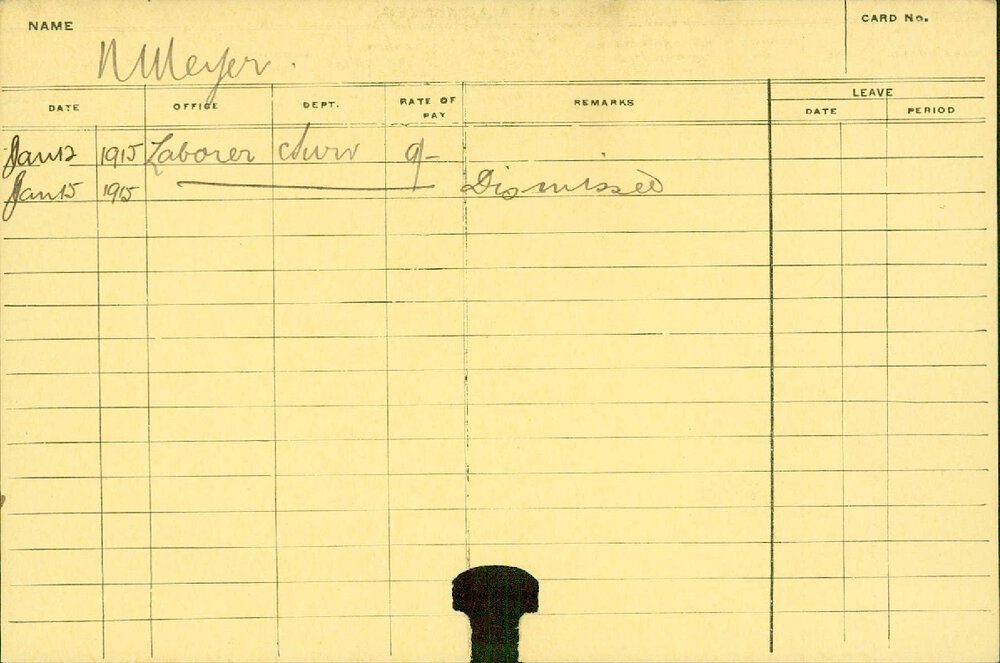 NAME
CARD No.
N Meyer.
DATE OFFICE DEPT. RATE OF PAY REMARKS LEAVE
DATE PERIOD
Jan 12 1915 Laborer 9/-
Jan 15 1915 Dismissed